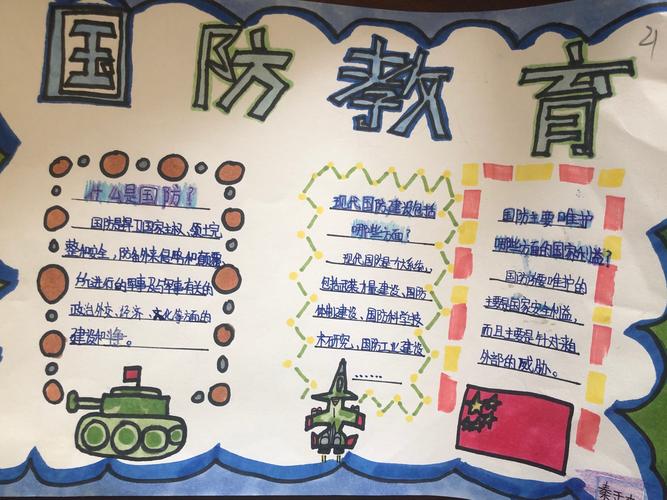 国防教育
21
什么是国防?
国防是捍卫国家主权、领土完
整和安全,防备外来侵略和颠覆,
所进行的军事及与军事有关的
政治外交、经济、文化等方面的
建设和斗争。
现代国防建设包括
哪些方面?
现代国防是个大系统,
包括武装力量建设、国防
体制建设、国防科学技
术研究、国防工业建设
……
国防主要维护
哪些方面的国家利益?
国防主要维护的
主要是国家安全利益,
而且主要是针对来自
外部的威胁。